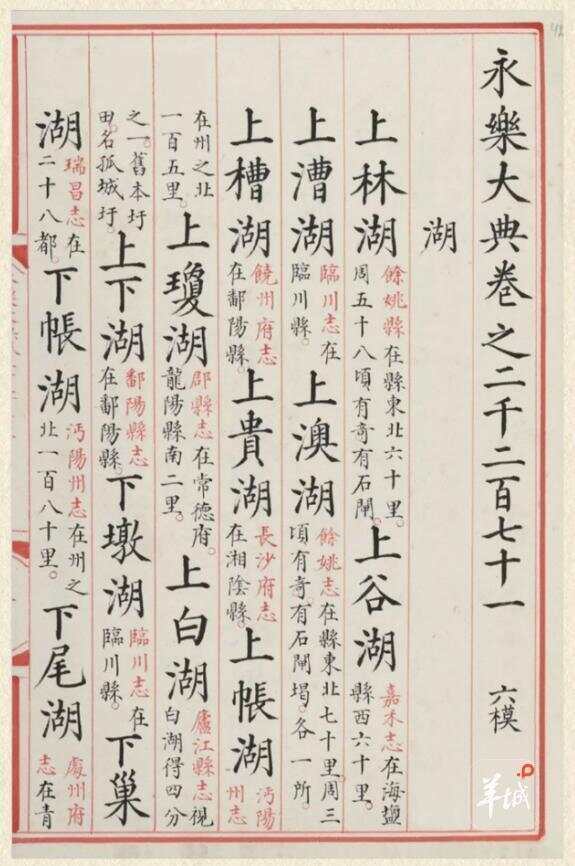 永樂大典卷之二千二百七十一 六模
湖
上林湖 餘姚縣在縣東北六十里。周五十八頃有奇有石閘。上谷湖 嘉禾志在海鹽縣西六十里。
上漕湖 臨川志在臨川縣。上澳湖 餘姚志在縣東北七十里周三頃有奇。有石閘堨。各一所。
上槽湖 饒州府志在鄱陽縣。上貴湖 長沙府志在湘陰縣。上帳湖 沔陽州志
在州之北一百五里。上瓊湖 郡縣志在常德府。龍陽縣南二里。上白湖 廬江縣志視白湖得四分
之一。舊本圩田名孤城圩。上下湖 鄱陽縣志在鄱陽縣。下墩湖 臨川志在臨川縣。下巢
湖 瑞昌志在二十八都。下帳湖 沔陽州志在州之北一百八十里。下尾湖 處州府志在青
羊城